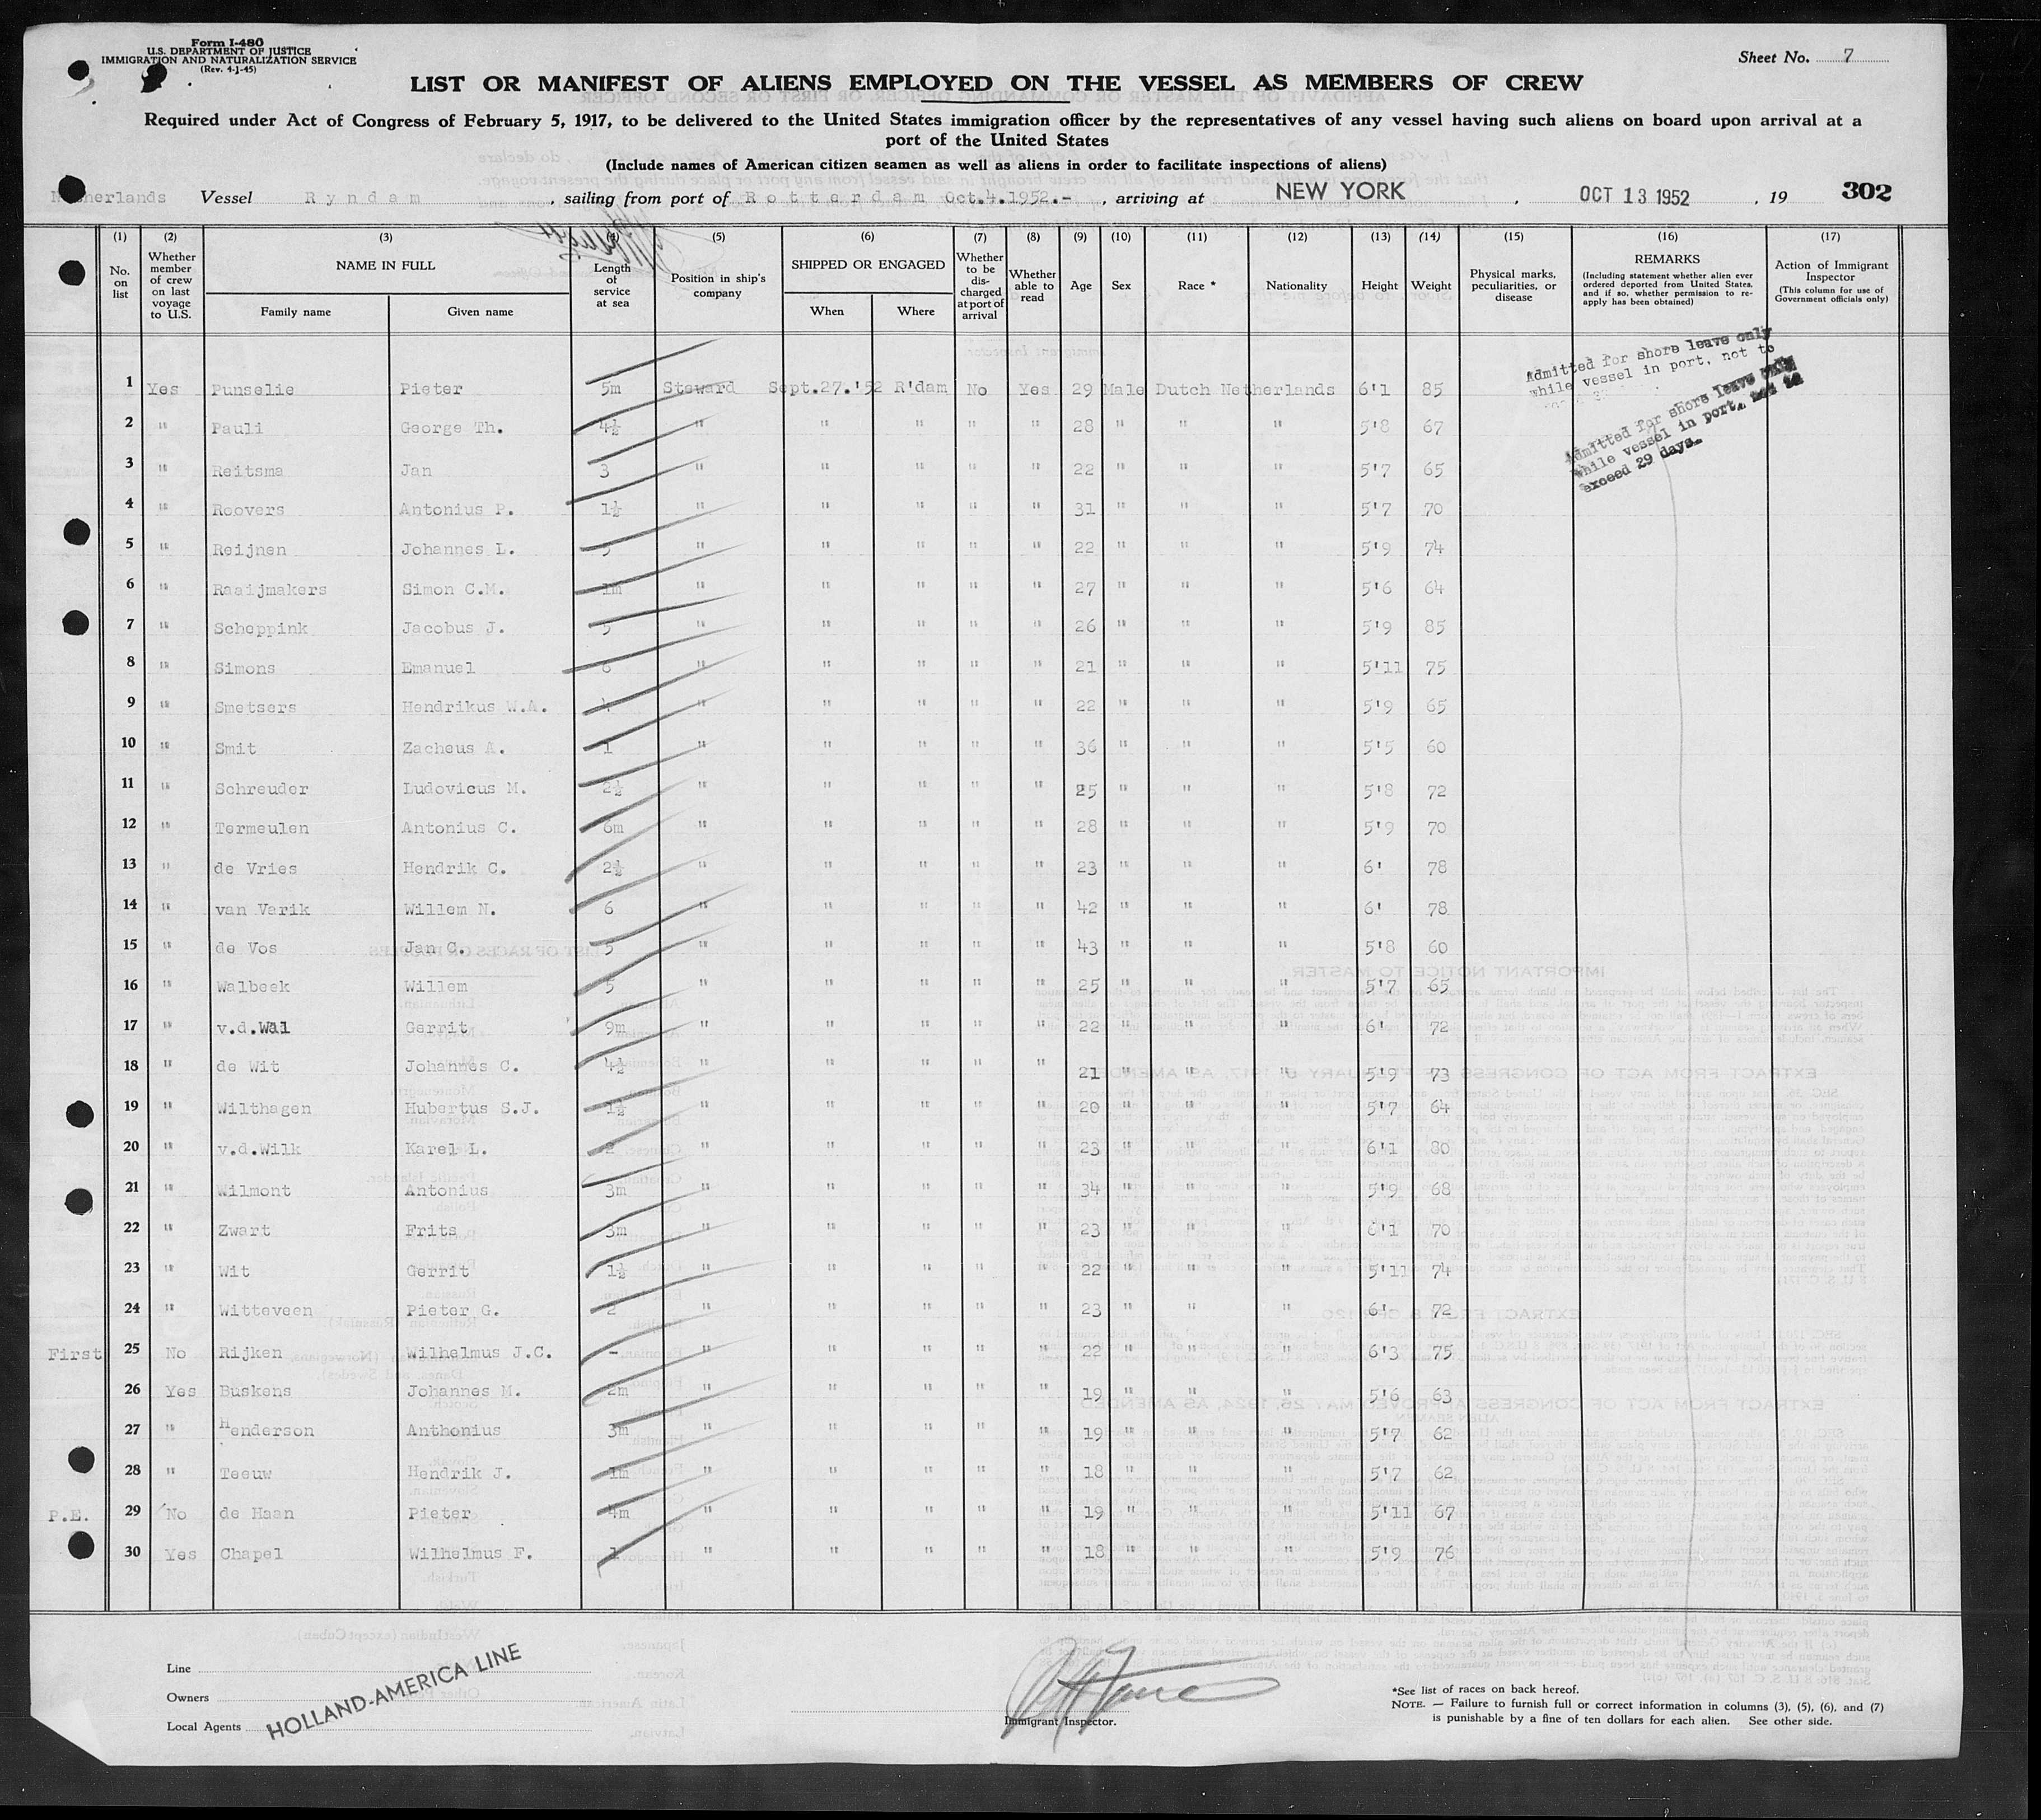 Form I-480
U.S. DEPARTMENT OF JUSTICE
IMMIGRATION AND NATURALIZATION SERVICE
(Rev. 4-1-45)
Sheet No. 7
LIST OR MANIFEST OF ALIENS EMPLOYED ON THE VESSEL AS MEMBERS OF CREW
Required under Act of Congress of February 5, 1917, to be delivered to the United States immigration officer by the representatives of any vessel having such aliens on board upon arrival at a
port of the United States
(Include names of American citizen seamen as well as aliens in order to facilitate inspections of aliens)
Netherlands Vessel Ryndam, sailing from port of Rotterdam Oct.4.1952.-, arriving at NEW YORK, OCT 13 1952, 19 302
(1) (2) (3) (4) (5) (6) (7) (8) (9) (10) (11) (12) (13) (14) (15) (16) (17)
No. on list
Whether member of crew on last voyage to U.S.
NAME IN FULL
Family name Given name
Length of service at sea
Position in ship's company
SHIPPED OR ENGAGED
When Where
Whether to be discharged at port of arrival
Whether able to read
Age Sex Race * Nationality Height Weight
Physical marks, peculiarities, or disease
REMARKS
(Including statement whether alien ever ordered deported from United States, and if so, whether permission to reapply has been obtained)
Action of Immigrant Inspector
(This column for use of Government officials only)
Admitted for shore leave only
while vessel in port, not to
Admitted for shore leave only
while vessel in port, not to
exceed 29 days.
1 Yes Punselie Pieter 5m Steward Sept.27.'52 R'dam No Yes 29 Male Dutch Netherlands 6'1 85
2 " Pauli George Th. 4½ " " " " " 28 " " " 5'8 67
3 " Reitsma Jan 3 " " " " " 22 " " " 5'7 65
4 " Roovers Antonius P. 1½ " " " " " 31 " " " 5'7 70
5 " Reijnen Johannes L. 5 " " " " " 22 " " " 5'9 74
6 " Raaijmakers Simon C.M. 1m " " " " " 27 " " " 5'6 64
7 " Scheppink Jacobus J. 5 " " " " " 26 " " " 5'9 85
8 " Simons Emanuel 6 " " " " " 21 " " " 5'11 75
9 " Smetsers Hendrikus W.A. " " " " " 22 " " " 5'9 65
10 " Smit Zacheus A. 1 " " " " " 36 " " " 5'5 60
11 " Schreuder Ludovicus M. 2½ " " " " " 25 " " " 5'8 72
12 " Termeulen Antonius C. 6m " " " " " 28 " " " 5'9 70
13 " de Vries Hendrik C. 2½ " " " " " 23 " " " 6' 78
14 " van Varik Willem N. 6 " " " " " 42 " " " 6' 78
15 " de Vos Jan C. 5 " " " " " 43 " " " 5'8 60
16 " Walbeek Willem 5 " " " " " 25 " " " 5'7 65
17 " v.d.Wal Gerrit 9m " " " " " 22 " " " 6' 72
18 " de Wit Johannes C. 4½ " " " " " 21 " " " 5'9 73
19 " Wilthagen Hubertus S.J. 1½ " " " " " 20 " " " 5'7 64
20 " v.d.Wilk Karel L. 2 " " " " " 23 " " " 6'1 80
21 " Wilmont Antonius 3m " " " " " 34 " " " 5'9 68
22 " Zwart Frits 3m " " " " " 23 " " " 6'1 70
23 " Wit Gerrit 1½ " " " " " 22 " " " 5'11 74
24 " Witteveen Pieter G. 2 " " " " " 23 " " " 6' 72
First 25 No Rijken Wilhelmus J.C. - " " " " " 22 " " " 6'3 75
26 Yes Buskens Johannes M. 2m " " " " " 19 " " " 5'6 63
27 " Henderson Anthonius 3m " " " " " 19 " " " 5'7 62
28 " Teeuw Hendrik J. 1m " " " " " 18 " " " 5'7 62
P.E. 29 No de Haan Pieter 4m " " " " " 19 " " " 5'11 67
30 Yes Chapel Wilhelmus F. 1 " " " " " 18 " " " 5'9 76
Line
Owners
Local Agents
HOLLAND-AMERICA LINE
Immigrant Inspector.
*See list of races on back hereof.
NOTE. — Failure to furnish full or correct information in columns (3), (5), (6), and (7)
is punishable by a fine of ten dollars for each alien. See other side.